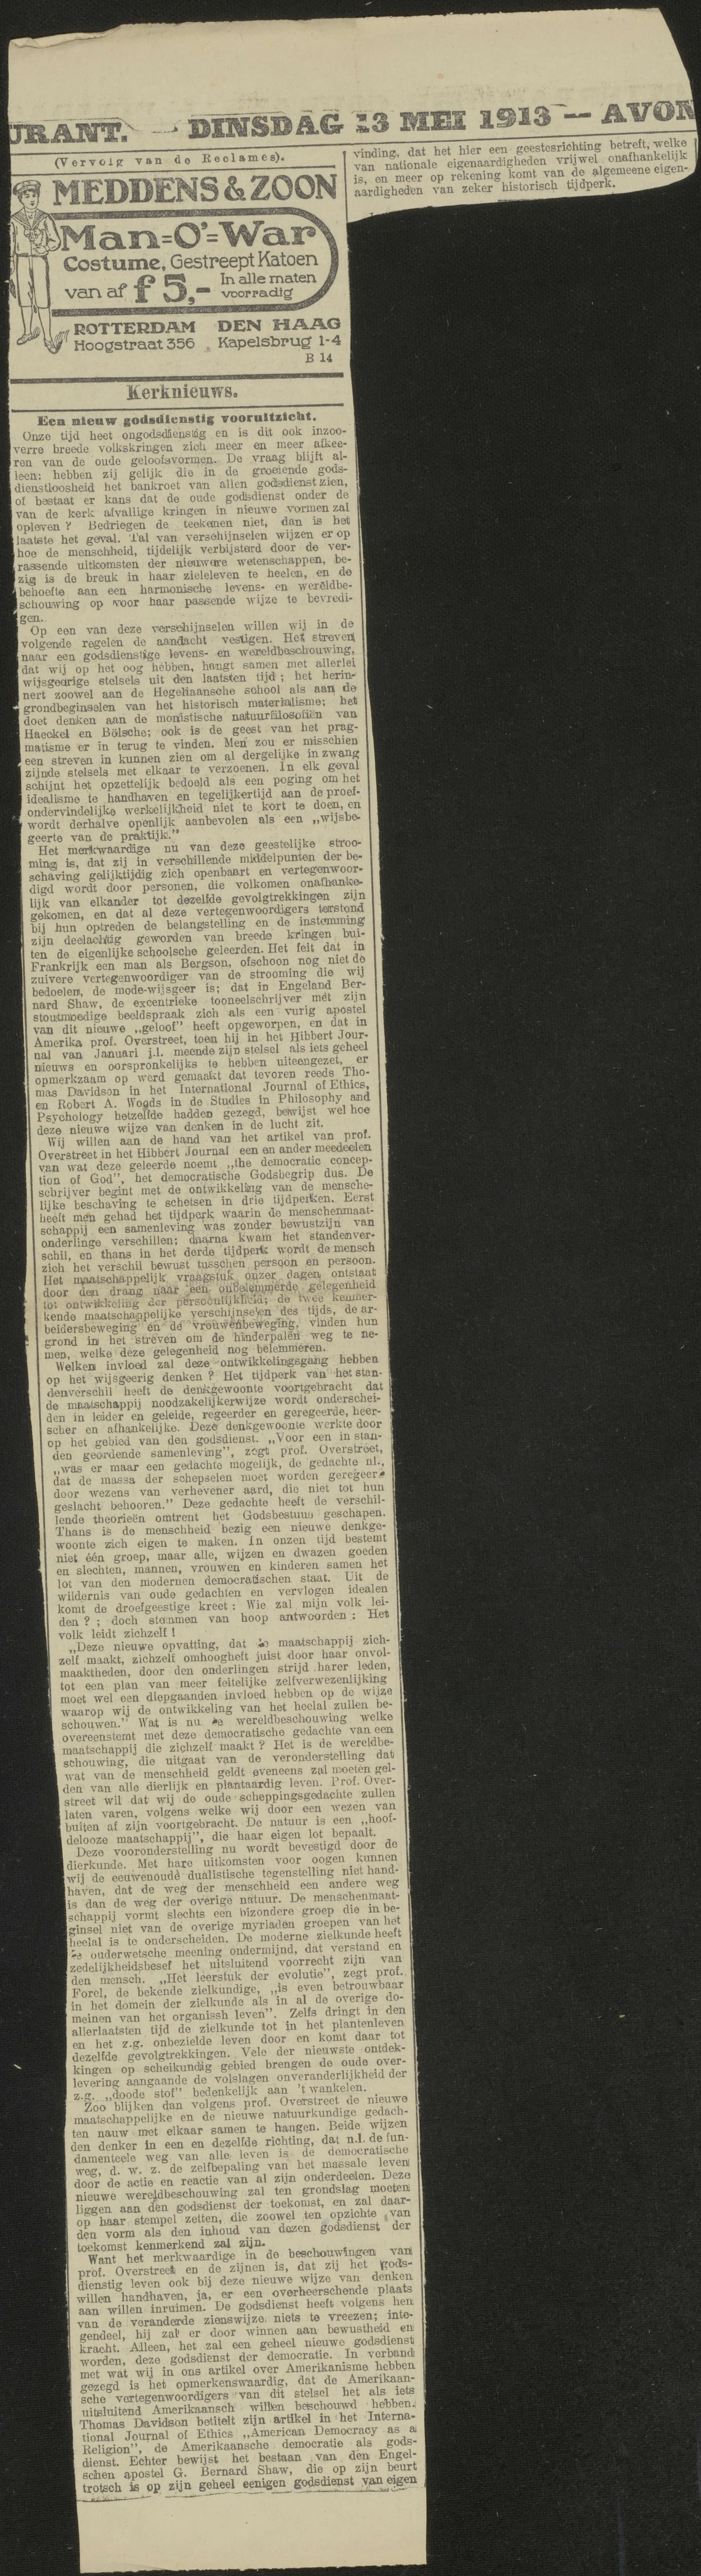 URANT. — DINSDAG 13 MEI 1913 — AVON
(Vervolg van de Reclames).
MEDDENS & ZOON
Man=O'=War
Costume, Gestreept Katoen
van af f 5,- In alle maten
voorradig
ROTTERDAM DEN HAAG
Hoogstraat 356 Kapelsbrug 1-4
B 14
Kerknieuws.
Een nieuw godsdienstig vooruitzicht.
Onze tijd heet ongodsdienstig en is dit ook inzoo-
verre breede volkskringen zich meer en meer afkee-
ren van de oude geloofsvormen. De vraag blijft al-
leen: hebben zij gelijk die in de groeiende gods-
dienstloosheid het bankroet van allen godsdienst zien,
of bestaat er kans dat de oude godsdienst onder de
van de kerk afvallige kringen in nieuwe vormen zal
opleven? Bedriegen de teekenen niet, dan is het
laatste het geval. Tal van verschijnselen wijzen er op
hoe de menschheid, tijdelijk verbijsterd door de ver-
rassende uitkomsten der nieuwere wetenschappen, be-
zig is de breuk in haar zieleleven te heelen, en de
behoefte aan een harmonische levens- en wereldbe-
schouwing op voor haar passende wijze te bevredi-
gen.
Op een van deze verschijnselen willen wij in de
volgende regelen de aandacht vestigen. Het streven
naar een godsdienstige levens- en wereldbeschouwing,
dat wij op het oog hebben, hangt samen met allerlei
wijsgeerige stelsels uit den laatsten tijd; het herin-
nert zoowel aan de Hegeliaansche school als aan de
grondbeginselen van het historisch materialisme; het
doet denken aan de monistische natuurfilosofiën van
Haeckel en Bölsche; ook is de geest van het prag-
matisme er in terug te vinden. Men zou er misschien
een streven in kunnen zien om al dergelijke in zwang
zijnde stelsels met elkaar te verzoenen. In elk geval
schijnt het opzettelijk bedoeld als een poging om het
idealisme te handhaven en tegelijkertijd aan de proef-
ondervindelijke werkelijkheid niet te kort te doen, en
wordt derhalve openlijk aanbevolen als een „wijsbe-
geerte van de praktijk."
Het merkwaardige nu van deze geestelijke stroo-
ming is, dat zij in verschillende middelpunten der be-
schaving gelijktijdig zich openbaart en vertegenwoor-
digd wordt door personen, die volkomen onafhanke-
lijk van elkander tot dezelfde gevolgtrekkingen zijn
gekomen, en dat al deze vertegenwoordigers terstond
bij hun optreden de belangstelling en de instemming
zijn deelachtig geworden van breede kringen bui-
ten de eigenlijke schoolsche geleerden. Het feit dat in
Frankrijk een man als Bergson, ofschoon nog niet de
zuivere vertegenwoordiger van de strooming die wij
bedoelen, de mode-wijsgeer is; dat in Engeland Ber-
nard Shaw, de excentrieke tooneelschrijver mét zijn
stoutmoedige beeldspraak zich als een vurig apostel
van dit nieuwe „geloof" heeft opgeworpen, en dat in
Amerika prof. Overstreet, toen hij in het Hibbert Jour-
nal van Januari j.l. meende zijn stelsel als iets geheel
nieuws en oorspronkelijks te hebben uiteengezet, er
opmerkzaam op werd gemaakt dat tevoren reeds Tho-
mas Davidson in het International Journal of Ethics,
en Robert A. Woods in de Studies in Philosophy and
Psychology hetzelfde hadden gezegd, bewijst wel hoe
deze nieuwe wijze van denken in de lucht zit.
Wij willen aan de hand van het artikel van prof.
Overstreet in het Hibbert Journal een en ander meedeelen
van wat deze geleerde noemt „the democratic concep-
tion of God", het democratische Godsbegrip dus. De
schrijver begint met de ontwikkeling van de mensche-
lijke beschaving te schetsen in drie tijdperken. Eerst
heeft men gehad het tijdperk waarin de menschenmaat-
schappij een samenleving was zonder bewustzijn van
onderlinge verschillen; daarna kwam het standenver-
schil, en thans in het derde tijdperk wordt de mensch
zich het verschil bewust tusschen persoon en persoon.
Het maatschappelijk vraagstuk onzer dagen ontstaat
door den drang naar een onbelemmerde gelegenheid
tot ontwikkeling der persoonlijkheid; de twee kenmer-
kende maatschappelijke verschijnselen des tijds, de ar-
beidersbeweging en de vrouwenbeweging, vinden hun
grond in het streven om de hinderpalen weg te ne-
men, welke deze gelegenheid nog belemmeren.
Welken invloed zal deze ontwikkelingsgang hebben
op het wijsgeerig denken? Het tijdperk van het stan-
denverschil heeft de denkgewoonte voortgebracht dat
de maatschappij noodzakelijkerwijze wordt onderschei-
den in leider en geleide, regeerder en geregeerde, heer-
scher en afhankelijke. Deze denkgewoonte werkte door
op het gebied van den godsdienst. „Voor een in stan-
den geordende samenleving", zegt prof. Overstreet,
„was er maar een gedachte mogelijk, de gedachte nl.,
dat de massa der schepselen moet worden geregeerd
door wezens van verhevener aard, die niet tot hun
geslacht behooren." Deze gedachte heeft de verschil-
lende theorieën omtrent het Godsbestuur geschapen.
Thans is de menschheid bezig een nieuwe denkge-
woonte zich eigen te maken. In onzen tijd bestemt
niet één groep, maar alle, wijzen en dwazen goeden
en slechten, mannen, vrouwen en kinderen samen het
lot van den modernen democratischen staat. Uit de
wildernis van oude gedachten en vervlogen idealen
komt de droefgeestige kreet: Wie zal mijn volk lei-
den?; doch stemmen van hoop antwoorden: Het
volk leidt zichzelf!
„Deze nieuwe opvatting, dat de maatschappij zich-
zelf maakt, zichzelf omhoogheft juist door haar onvol-
maaktheden, door den onderlingen strijd harer leden,
tot een plan van meer feitelijke zelfverwezenlijking
moet wel een diepgaanden invloed hebben op de wijze
waarop wij de ontwikkeling van het heelal zullen be-
schouwen." Wat is nu de wereldbeschouwing welke
overeenstemt met deze democratische gedachte van een
maatschappij die zichzelf maakt? Het is de wereldbe-
schouwing, die uitgaat van de veronderstelling dat
wat van de menschheid geldt eveneens zal moeten gel-
den van alle dierlijk en plantaardig leven. Prof. Over-
street wil dat wij de oude scheppingsgedachte zullen
laten varen, volgens welke wij door een wezen van
buiten af zijn voortgebracht. De natuur is een „hoof-
delooze maatschappij", die haar eigen lot bepaalt.
Deze vooronderstelling nu wordt bevestigd door de
dierkunde. Met hare uitkomsten voor oogen kunnen
wij de eeuwenoude dualistische tegenstelling niet hand-
haven, dat de weg der menschheid een andere weg
is dan de weg der overige natuur. De menschenmaat-
schappij vormt slechts een bizondere groep die in be-
ginsel niet van de overige myriaden groepen van het
heelal is te onderscheiden. De moderne zielkunde heeft
de ouderwetsche meening ondermijnd, dat verstand en
zedelijkheidsbesef het uitsluitend voorrecht zijn van
den mensch. „Het leerstuk der evolutie", zegt prof.
Forel, de bekende zielkundige, „is even betrouwbaar
in het domein der zielkunde als in al de overige do-
meinen van het organissh leven". Zelfs dringt in den
allerlaatsten tijd de zielkunde tot in het plantenleven
en het z.g. onbezielde leven door en komt daar tot
dezelfde gevolgtrekkingen. Vele der nieuwste ontdek-
kingen op scheikundig gebied brengen de oude over-
levering aangaande de volslagen onveranderlijkheid der
z.g. „doode stof" bedenkelijk aan 't wankelen.
Zoo blijken dan volgens prof. Overstreet de nieuwe
maatschappelijke en de nieuwe natuurkundige gedach-
ten nauw met elkaar samen te hangen. Beide wijzen
den denker in een en dezelfde richting, dat n.l. de fun-
damenteele weg van alle leven is de democratische
weg, d. w. z. de zelfbepaling van het massale leven
door de actie en reactie van al zijn onderdeelen. Deze
nieuwe wereldbeschouwing zal ten grondslag moeten
liggen aan den godsdienst der toekomst, en zal daar-
op haar stempel zetten, die zoowel ten opzichte van
den vorm als den inhoud van dezen godsdienst der
toekomst kenmerkend zal zijn.
Want het merkwaardige in de beschouwingen van
prof. Overstreet en de zijnen is, dat zij het gods-
dienstig leven ook bij deze nieuwe wijze van denken
willen handhaven, ja, er een overheerschende plaats
aan willen inruimen. De godsdienst heeft volgens hen
van de veranderde zienswijze niets te vreezen; inte-
gendeel, hij zal er door winnen aan bewustheid en
kracht. Alleen, het zal een geheel nieuwe godsdienst
worden, deze godsdienst der democratie. In verband
met wat wij in ons artikel over Amerikanisme hebben
gezegd is het opmerkenswaardig, dat de Amerikaan-
sche vertegenwoordigers van dit stelsel het als iets
uitsluitend Amerikaansch willen beschouwd hebben.
Thomas Davidson betitelt zijn artikel in het Interna-
tional Journal of Ethics „American Democracy as a
Religion", de Amerikaansche democratie als gods-
dienst. Echter bewijst het bestaan van den Engel-
schen apostel G. Bernard Shaw, die op zijn beurt
trotsch is op zijn geheel eenigen godsdienst van eigen
vinding, dat het hier een geestesrichting betreft, welke
van nationale eigenaardigheden vrijwel onafhankelijk
is, en meer op rekening komt van de algemeene eigen-
aardigheden van zeker historisch tijdperk.